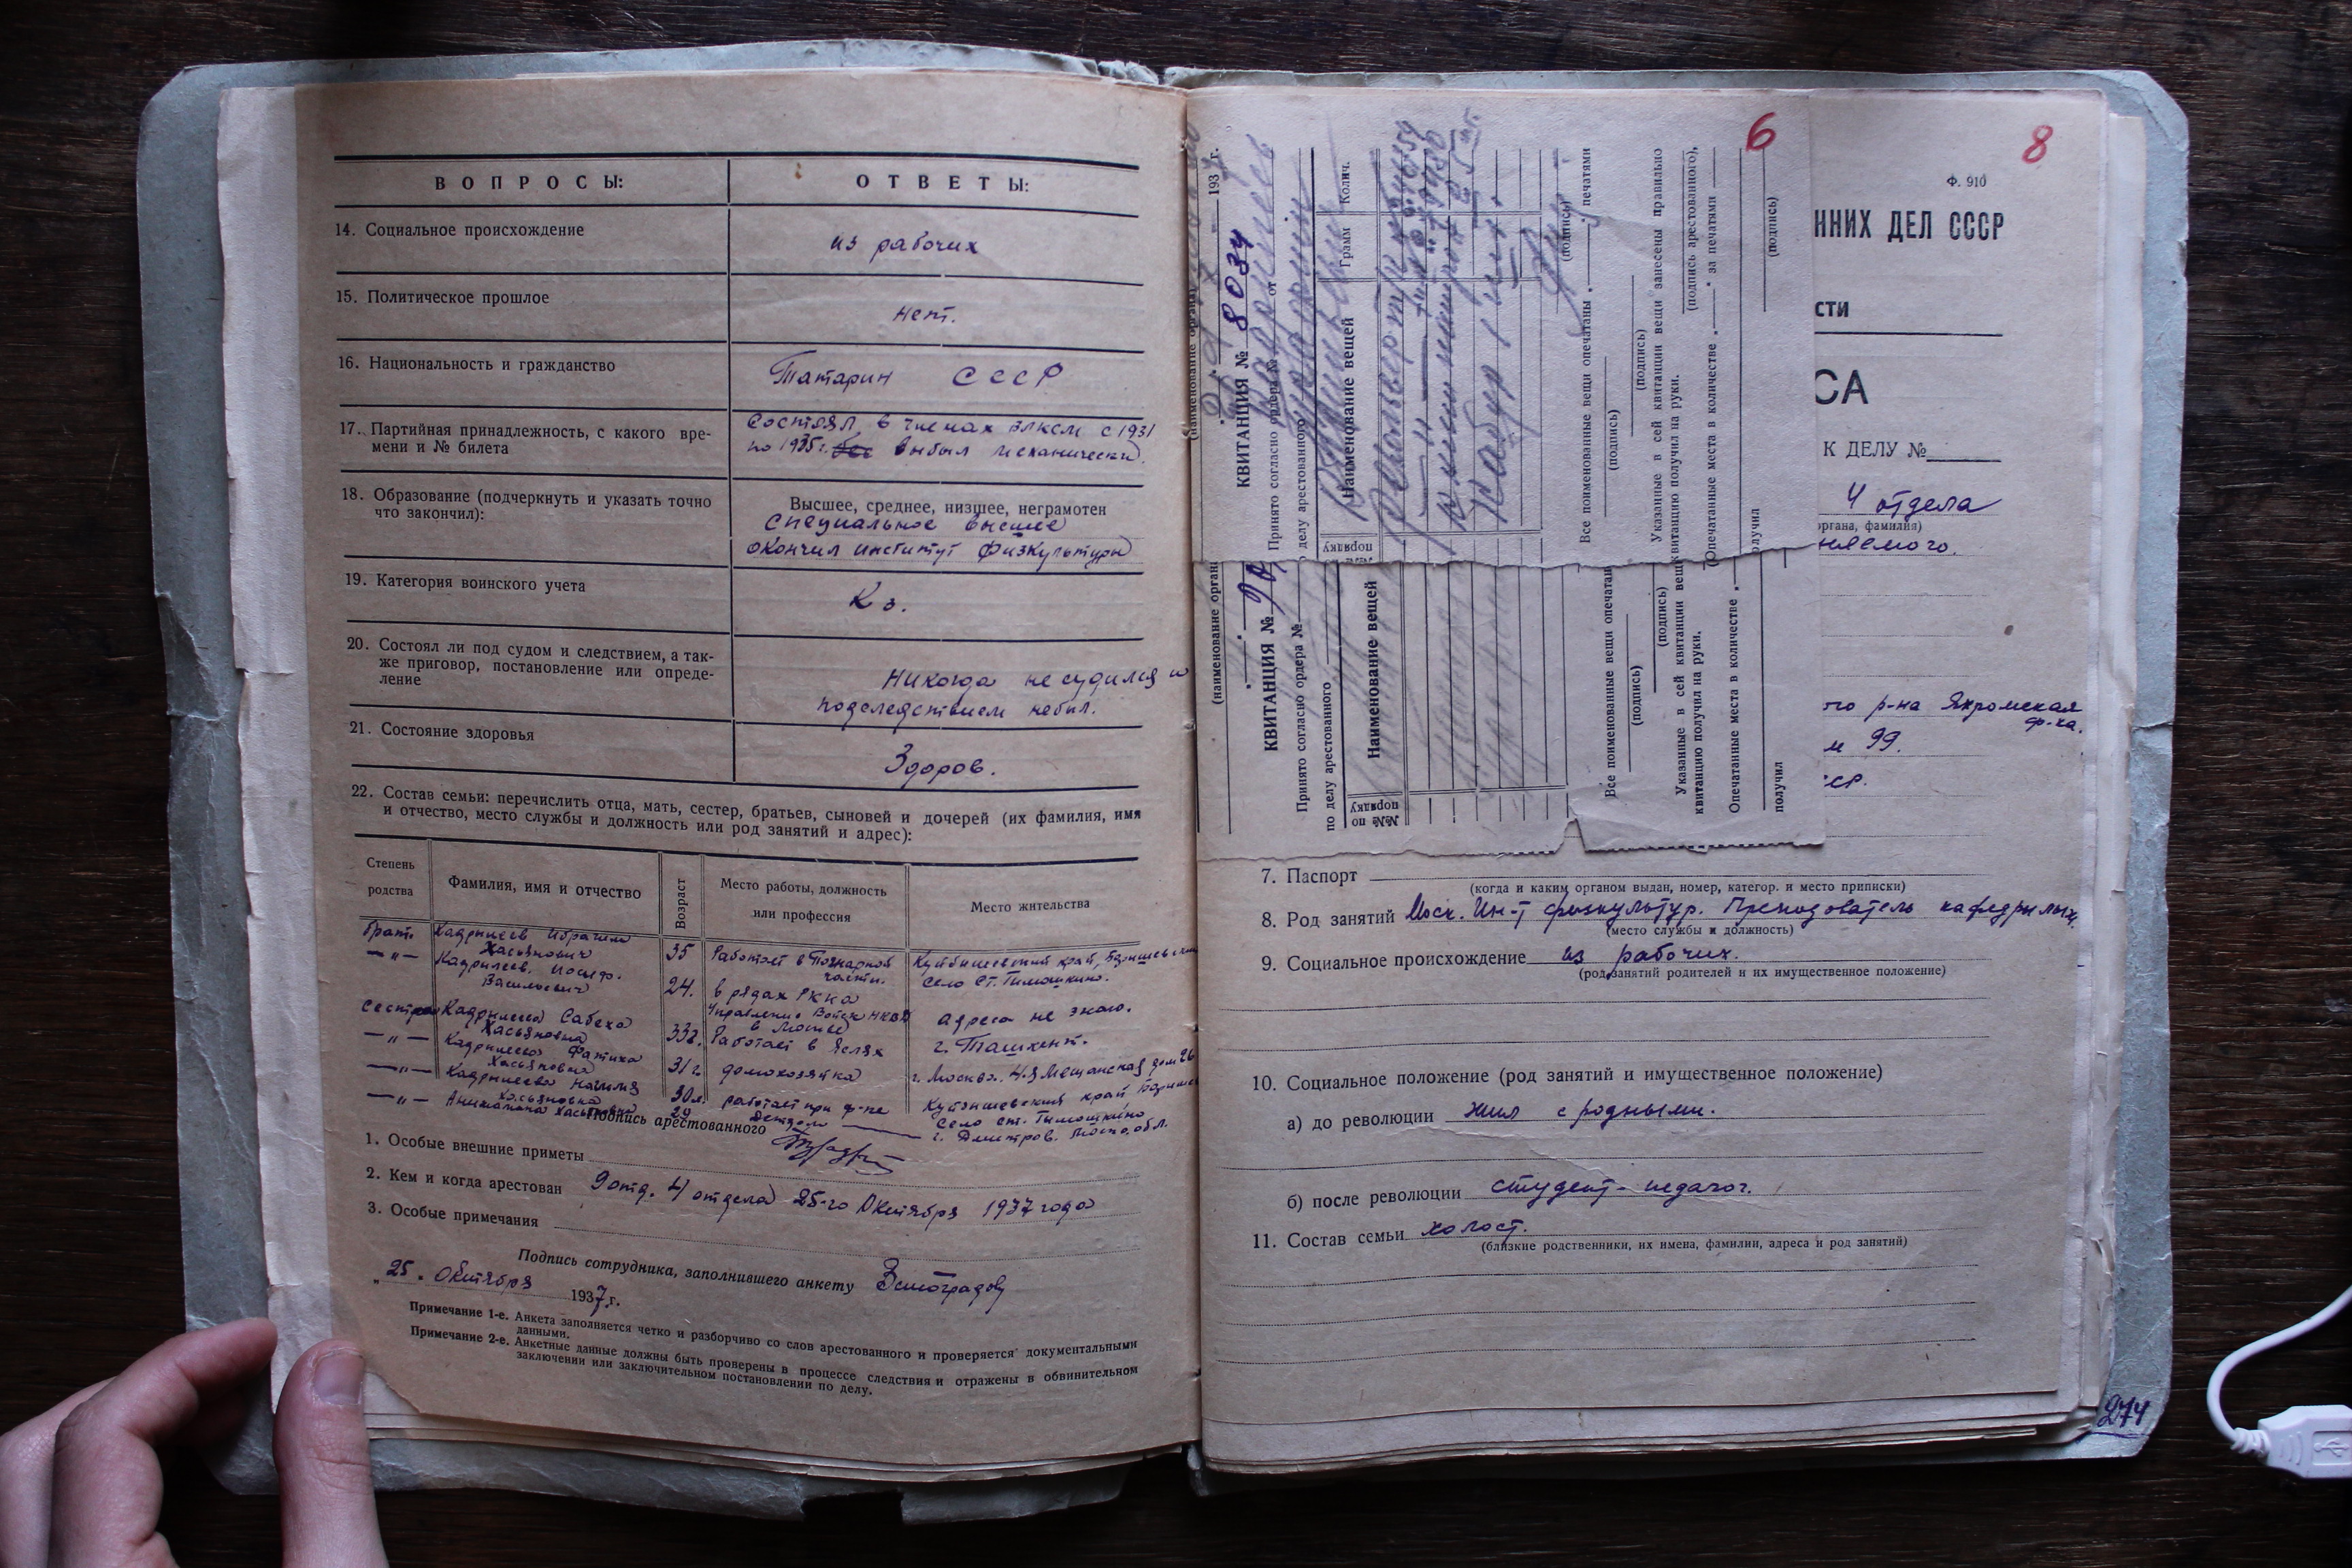 ВОПРОСЫ: ОТВЕТЫ:
14. Социальное происхождение из рабочих
15. Политическое прошлое нет.
16. Национальность и гражданство Татарин СССР
17. Партийная принадлежность, с какого вре- Состоял в членах ВЛКСМ с 1931
мени и № билета по 1935 г. выбыл механически.
18. Образование (подчеркнуть и указать точно Высшее, среднее, низшее, неграмотен
что закончил): специальное высшее
окончил институт физкультуры
19. Категория воинского учета К з.
20. Состоял ли под судом и следствием, а так-
же приговор, постановление или опреде- Никогда не судился и
ление подследствием небыл.
21. Состояние здоровья Здоров.
22. Состав семьи: перечислить отца, мать, сестер, братьев, сыновей и дочерей (их фамилия, имя
и отчество, место службы и должность или род занятий и адрес):
Степень родства Фамилия, имя и отчество Возраст Место работы, должность или профессия Место жительства
брат. Кадрилеев Ибрагим Хасьянович 35 Работает в Пожарной части. Куйбышевский край, село Ст. Тимошкино.
— „ — Кадрилеев. Иосиф. Васильевич 24. в рядах РККА Управление Войск НКВД в Москве адреса не знаю.
сестра Кадрилеева Сабеха Хасьяновна 33г. Работает в яслях г. Ташкент.
— „ — Кадрилеева Фатиха Хасьяновна 31 г. домохозяйка г. Москва. 4-я Мещанская дом 26
— „ — Кадрилеева Хасьяновна 30л. работает при Куйбышевский край село ст. Тимошкино
— „ — Хасьяновна 29 г. Дмитров. Моск. обл.
Подпись арестованного
1. Особые внешние приметы
2. Кем и когда арестован 9 отд. 4 отдела 25-го Октября 1937 года
3. Особые примечания
Подпись сотрудника, заполнившего анкету
„25. Октября 1937 г.
Примечание 1-е. Анкета заполняется четко и разборчиво со слов арестованного и проверяется документальными
данными.
Примечание 2-е. Анкетные данные должны быть проверены в процессе следствия и отражены в обвинительном
заключении или заключительном постановлении по делу.
6
(наименование органа)
193 г.
КВИТАНЦИЯ № 8034
Принято согласно ордера № от
по делу арестованного
Наименование вещей Грамм Колич.
порядку
Револьвер
Кобур 1 шт.
(подписи)
Все поименованные вещи опечатаны печатями
(подпись)
(подпись)
Указанные в сей квитанции вещи занесены правильно
квитанцию получил на руки.
(подпись арестованного),
Опечатанные места в количестве за печатями
получил
(подпись)
(наименование орган
КВИТАНЦИЯ №
Принято согласно ордера №
по делу арестованного
№№ по порядку Наименование вещей
Все поименованные вещи опечатан
(подпись)
(подпись)
Указанные в сей квитанции вещ
квитанцию получил на руки.
Опечатанные места в количестве
получил
8
Ф. 910
ННИХ ДЕЛ СССР
СТИ
СА
К ДЕЛУ №
4 отдела
органа, фамилия)
няемого.
ого р-на Яхромская
ф-ка.
м 99.
7. Паспорт
(когда и каким органом выдан, номер, категор. и место приписки)
8. Род занятий Моск. Ин-т физкультур. Преподователь кафедры лыж.
(место службы и должность)
9. Социальное происхождение из рабочих.
(род занятий родителей и их имущественное положение)
10. Социальное положение (род занятий и имущественное положение)
а) до революции жил с родными.
б) после революции студент - педагог.
11. Состав семьи холост.
(близкие родственники, их имена, фамилии, адреса и род занятий)
274